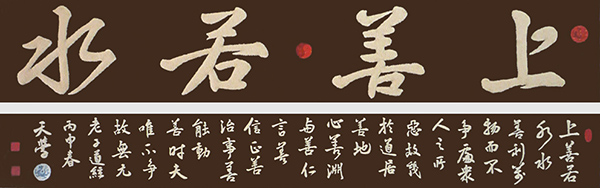 上善若水
上善若
水水
善利万
物而不
争處衆
人之所
惡故幾
於道居
善地
心善淵
与善仁
言善
信正善
治事善
能動
善时夫
唯不争
故無尤
老子道経
丙申春
天